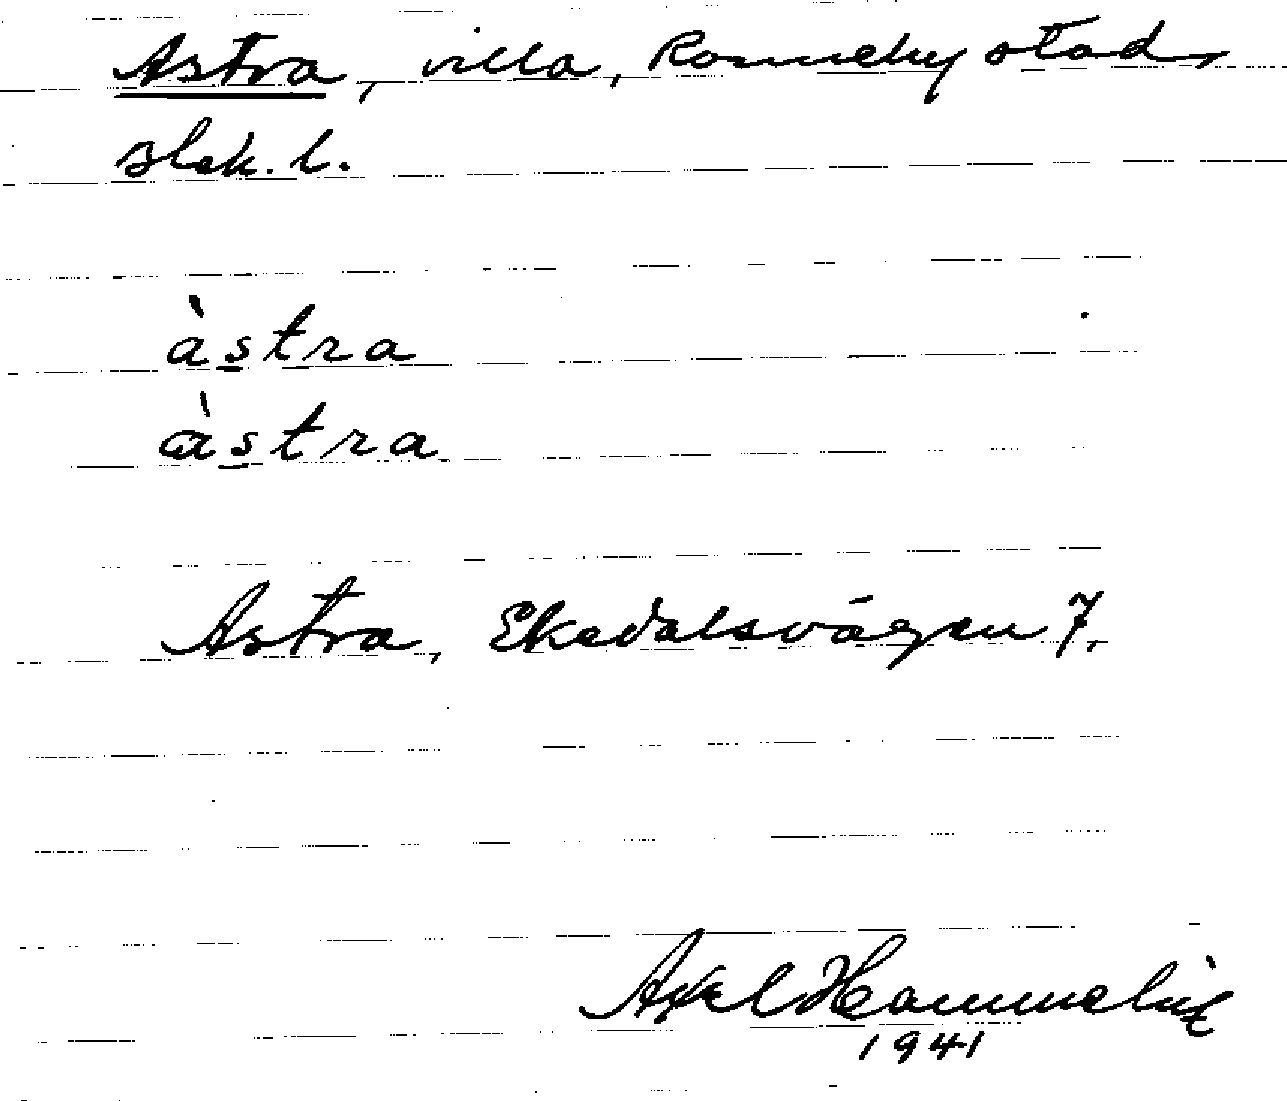 Astra, villa, Ronneby stad,
Blek. l.
àstra
àstra
Astra, Ekedalsvägen 7.
Axel Hammelin
1941